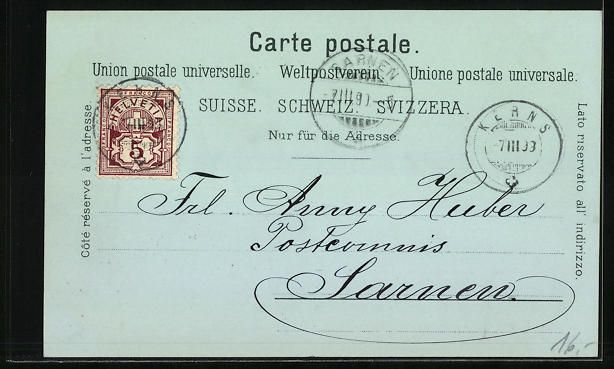 Carte postale.
Union postale universelle. Weltpostverein. Unione postale universale.
SUISSE. SCHWEIZ. SVIZZERA.
Nur für die Adresse.
Côté réservé à l'adresse.
Lato riservato all' indirizzo.
HELVETIA
5
SARNEN
KERNS
KERNS
Frl. Anny Huber
Postcommis
Sarnen.
16,-